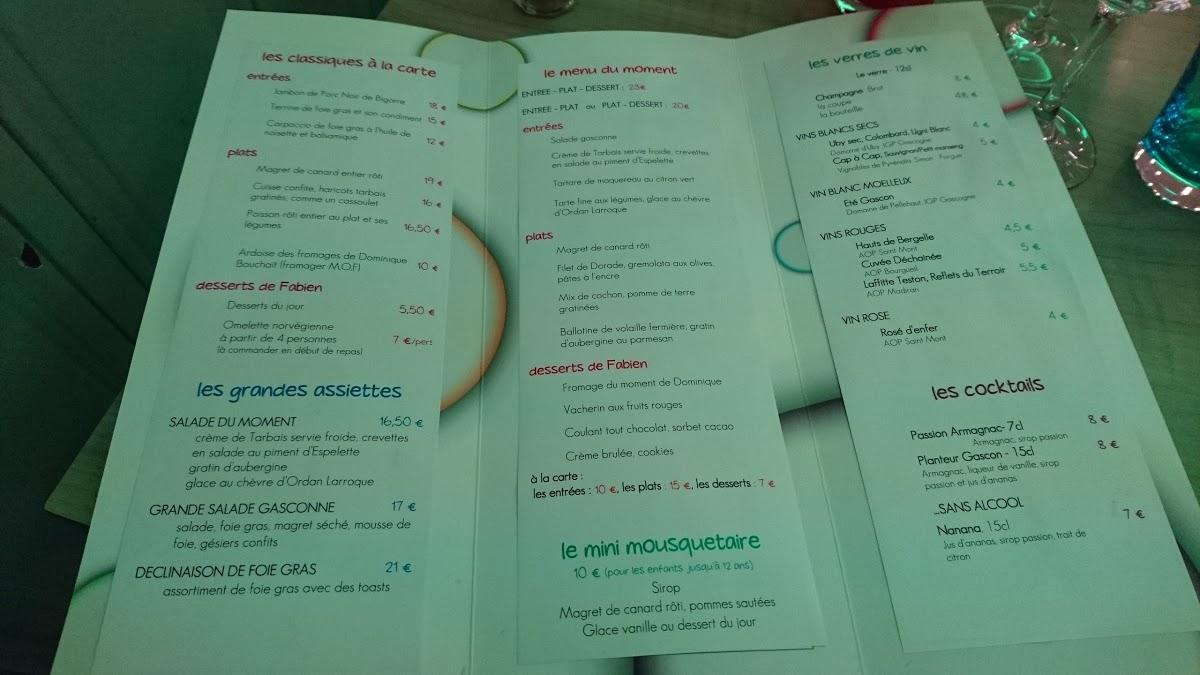 les classiques à la carte
entrées
Jambon de Porc Noir de Bigorre 18 €
Terrine de foie gras et son condiment 15 €
Carpaccio de foie gras à l'huile de
noisette et balsamique 12 €
plats
Magret de canard entier rôti 19 €
Cuisse confite, haricots tarbais
gratinés, comme un cassoulet 16 €
Poisson rôti entier au plat et ses
légumes 16,50 €
Ardoise des fromages de Dominique
Bouchait (fromager M.O.F) 10 €
desserts de Fabien
Desserts du jour 5,50 €
Omelette norvégienne
à partir de 4 personnes 7 €/pers
(à commander en début de repas)
les grandes assiettes
SALADE DU MOMENT 16,50 €
crème de Tarbais servie froide, crevettes
en salade au piment d'Espelette
gratin d'aubergine
glace au chèvre d'Ordan Larroque
GRANDE SALADE GASCONNE 17 €
salade, foie gras, magret séché, mousse de
foie, gésiers confits
DECLINAISON DE FOIE GRAS 21 €
assortiment de foie gras avec des toasts
le menu du moment
ENTREE - PLAT - DESSERT : 23€
ENTREE - PLAT ou PLAT - DESSERT : 20€
entrées
Salade gasconne
Crème de Tarbais servie froide, crevettes
en salade au piment d'Espelette
Tartare de maquereau au citron vert
Tarte fine aux légumes, glace au chèvre
d'Ordan Larroque
plats
Magret de canard rôti
Filet de Dorade, gremolata aux olives,
pâtes à l'encre
Mix de cochon, pomme de terre
gratinées
Ballotine de volaille fermière, gratin
d'aubergine au parmesan
desserts de Fabien
Fromage du moment de Dominique
Vacherin aux fruits rouges
Coulant tout chocolat, sorbet cacao
Crème brulée, cookies
à la carte :
les entrées : 10 €, les plats : 15 €, les desserts : 7 €
le mini mousquetaire
10 € (pour les enfants jusqu'à 12 ans)
Sirop
Magret de canard rôti, pommes sautées
Glace vanille ou dessert du jour
les verres de vin
Le verre - 12cl
Champagne Brut
la coupe 8 €
la bouteille 48 €
VINS BLANCS SECS
Uby sec, Colombard, Ugni Blanc 4 €
Domaine d'Uby, IGP Gascogne
Cap à Cap, Sauvignon/Petit manseng 5 €
Vignobles de Pyrénées Simon Forgue
VIN BLANC MOELLEUX
Eté Gascon 4 €
Domaine de Pellehaut, IGP Gascogne
VINS ROUGES
Hauts de Bergelle 4,5 €
AOP Saint Mont
Cuvée Déchainée 5 €
AOP Bourgueil
Laffitte Teston, Reflets du Terroir 5,5 €
AOP Madiran
VIN ROSE
Rosé d'enfer 4 €
AOP Saint Mont
les cocktails
Passion Armagnac- 7cl 8 €
Armagnac, sirop passion
Planteur Gascon - 15cl 8 €
Armagnac, liqueur de vanille, sirop
passion et jus d'ananas
...SANS ALCOOL
Nanana, 15cl 7 €
Jus d'ananas, sirop passion, trait de
citron